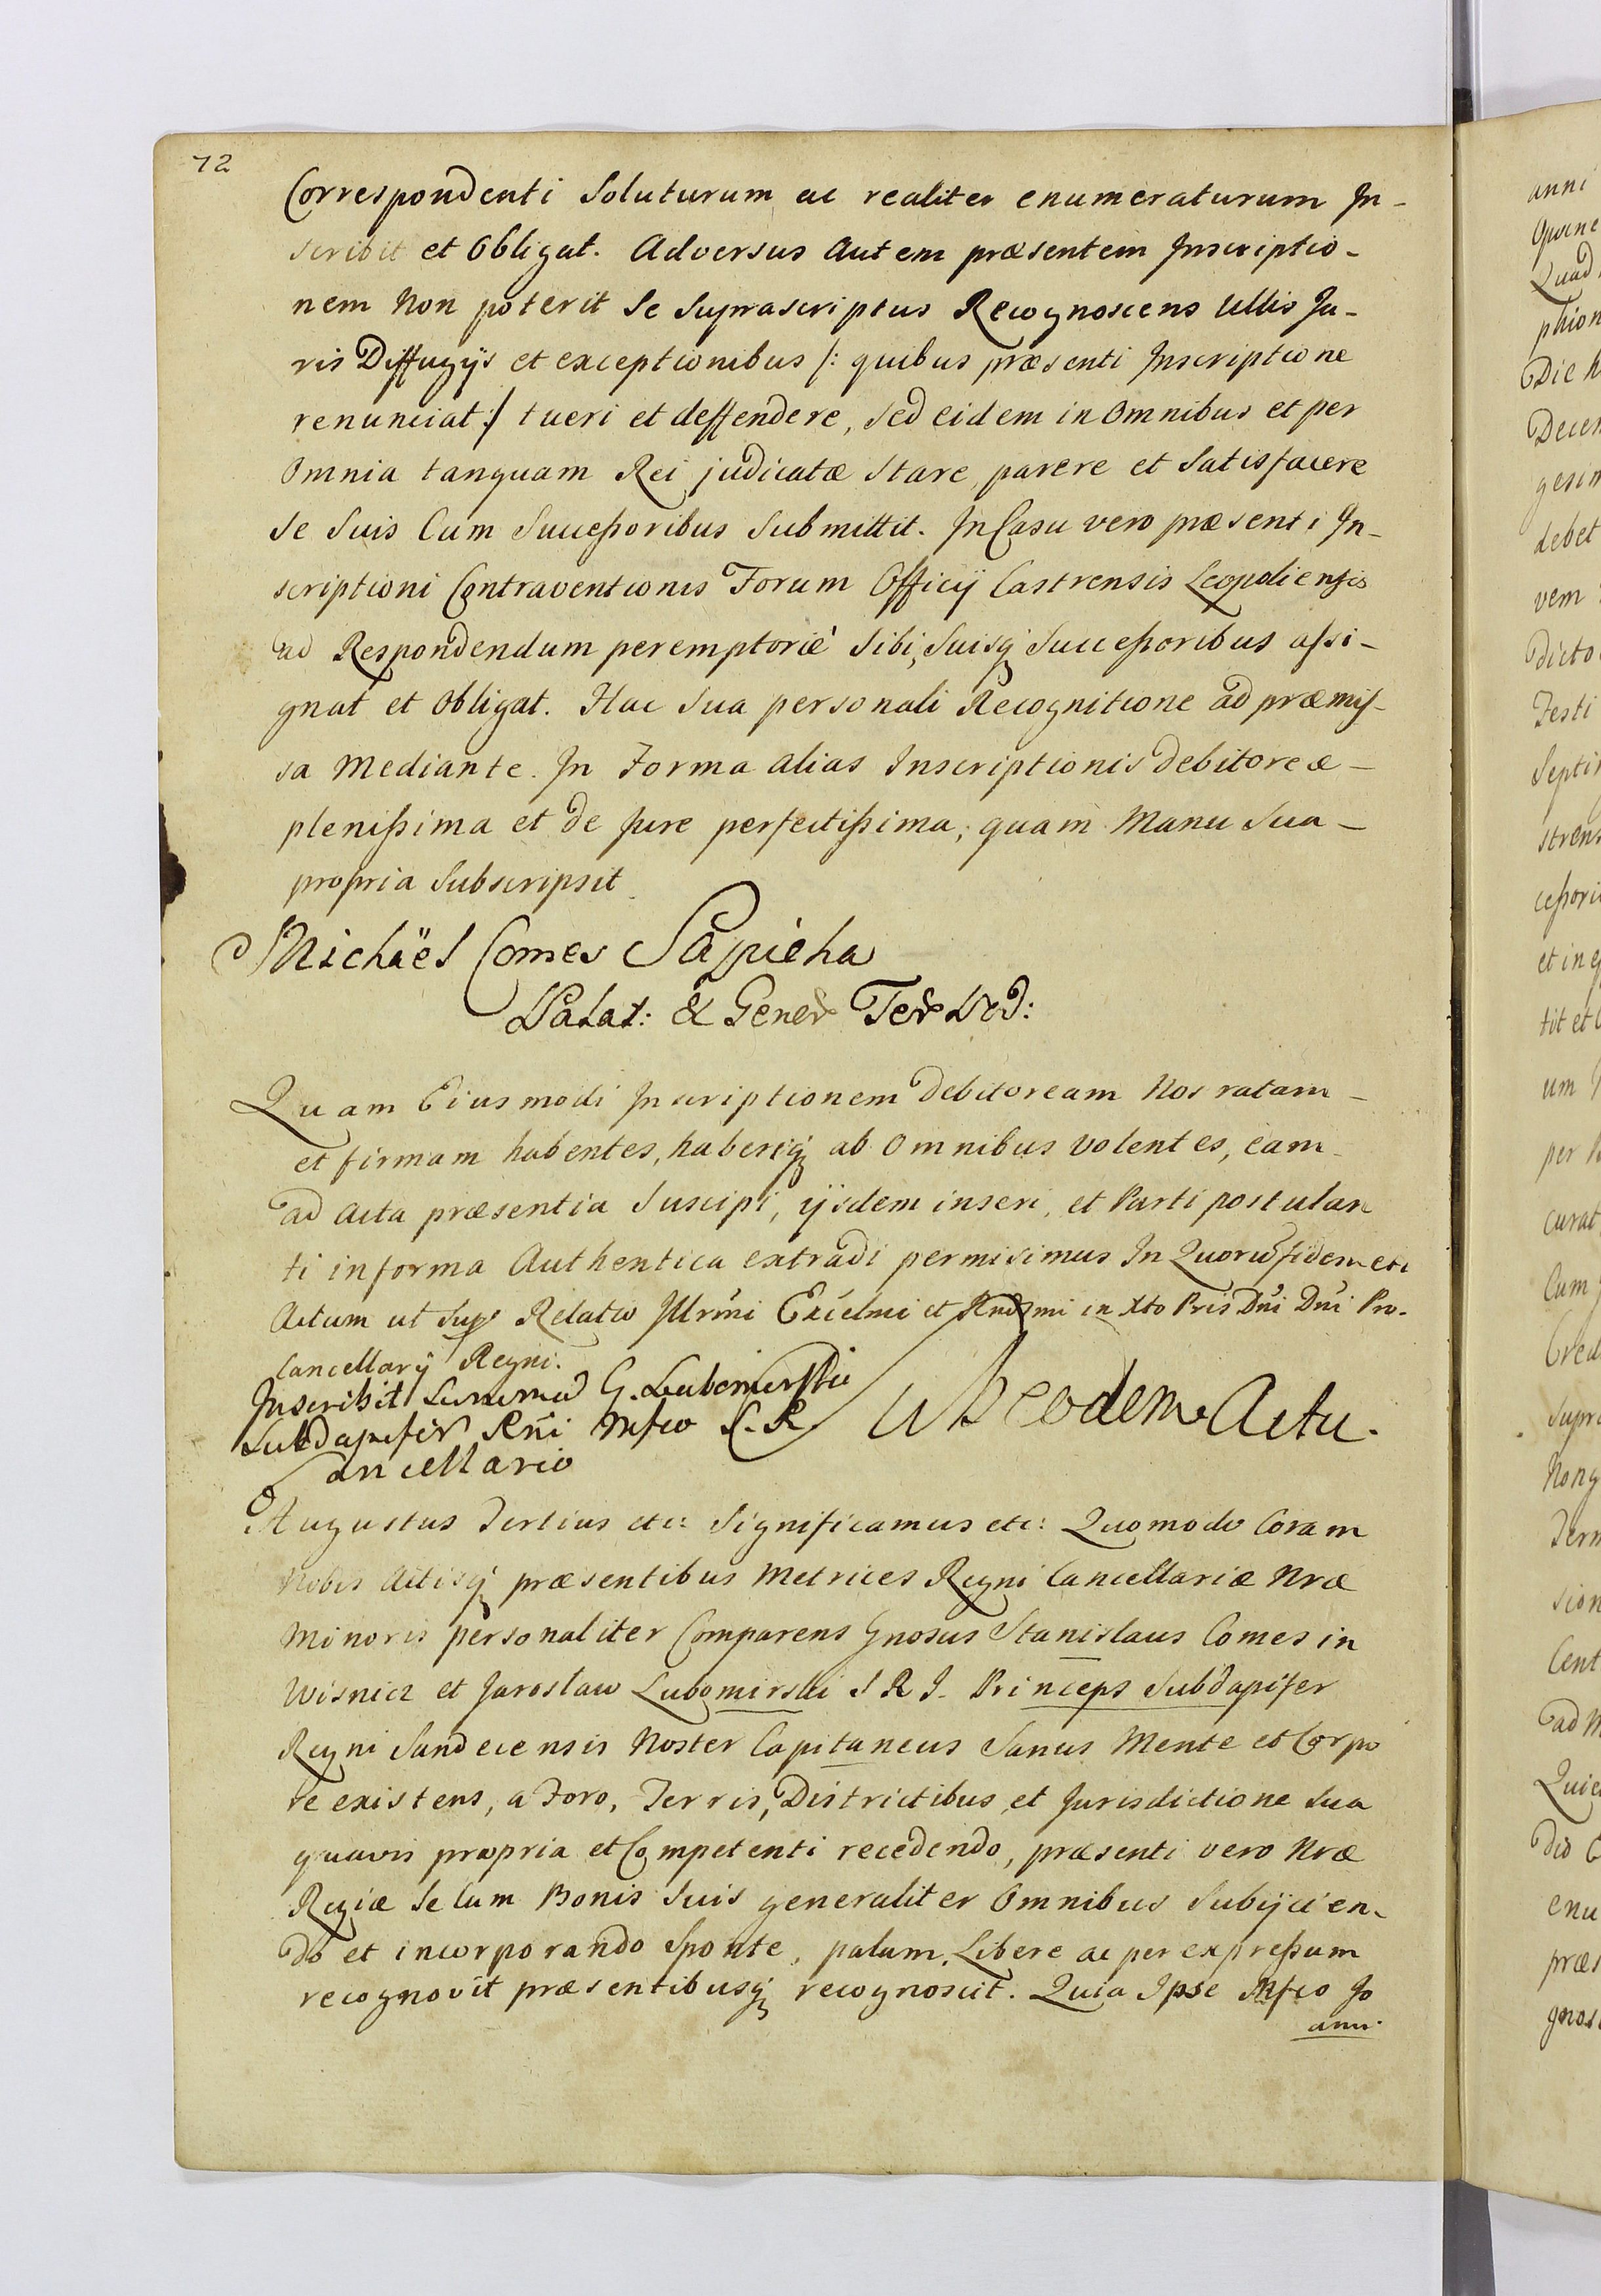 12
Correspondenti Soluturum ac realiter enumeraturum In-
scribit et Obligat. Adversus Autem præsentem Inscriptio-
nem Non poterit Se Suprascriptus Recognoscens Ullis Ju-
ris Diffugijs et exceptionibus /: quibus præsenti Inscriptione
renunciat :/ tueri et deffendere, Sed eidem in Omnibus et per
Omnia tanquam Rei judicatæ Stare, parere et Satisfacere
Se Suis Cum Successoribus Submittit. In Casu vero præsenti In-
scriptioni Contraventionis Forum Officij Castrensis Leopoliensis
ad Respondendum peremptorie Sibi, Suisq; Successoribus assi-
gnat et Obligat. Hac Sua personali Recognitione ad præmis-
sa Mediante. In Forma alias Inscriptionis debitoreæ -
plenissima et de Jure perfectissima, quam Manu Sua -
propria Subscripsit.
Michäel Comes Sapieha
Palat: & Gener
Quam Eiusmodi Inscriptionem debitoream Nos ratam -
et firmam habentes, haberiq; ab Omnibus Volentes, eam
ad Acta præsentia Suscipi, ijsdem inseri, et Parti postulan
ti in forma Authentica extradi permisimus In Quorū fidem etc
Actum ut Supr Relatio Illrmi Excelmi et Rndsmi in Xto Pris Dni Dni Pro-
Cancellarij Regni.
Inscribit Summā G. Lubomirski
Subdapifer Rñi Mfco C. R
Cancellario
Ut eodem Actu.
Augustus Tertius etc: Significamus etc: Quomodo Coram
Nobis Actisq; præsentibus Metrices Regni Cancellariæ Nræ
Minoris personaliter Comparens Gnosus Stanislaus Comes in
Wisnicz et Jaroslaw Lubomirski S R I. Princeps Subdapifer
Regni Sandecensis Noster Capitaneus Sanus Mente et Corpo
re existens, a Foro, Terris, Districtibus et Jurisdictione Sua
quavis propria et Competenti recedendo, præsenti vero Nræ
Regiæ Se Cum Bonis Suis generaliter Omnibus Subijcien-
do et incorporando Sponte, palam, Libere ac per expressum
recognovit præsentibusq; recognoscit. Quia Ipse Mfco Jo
anni
anni
Die
debet
vem
dicto
Festi
per
Cum
supra
sion
Cent
enu